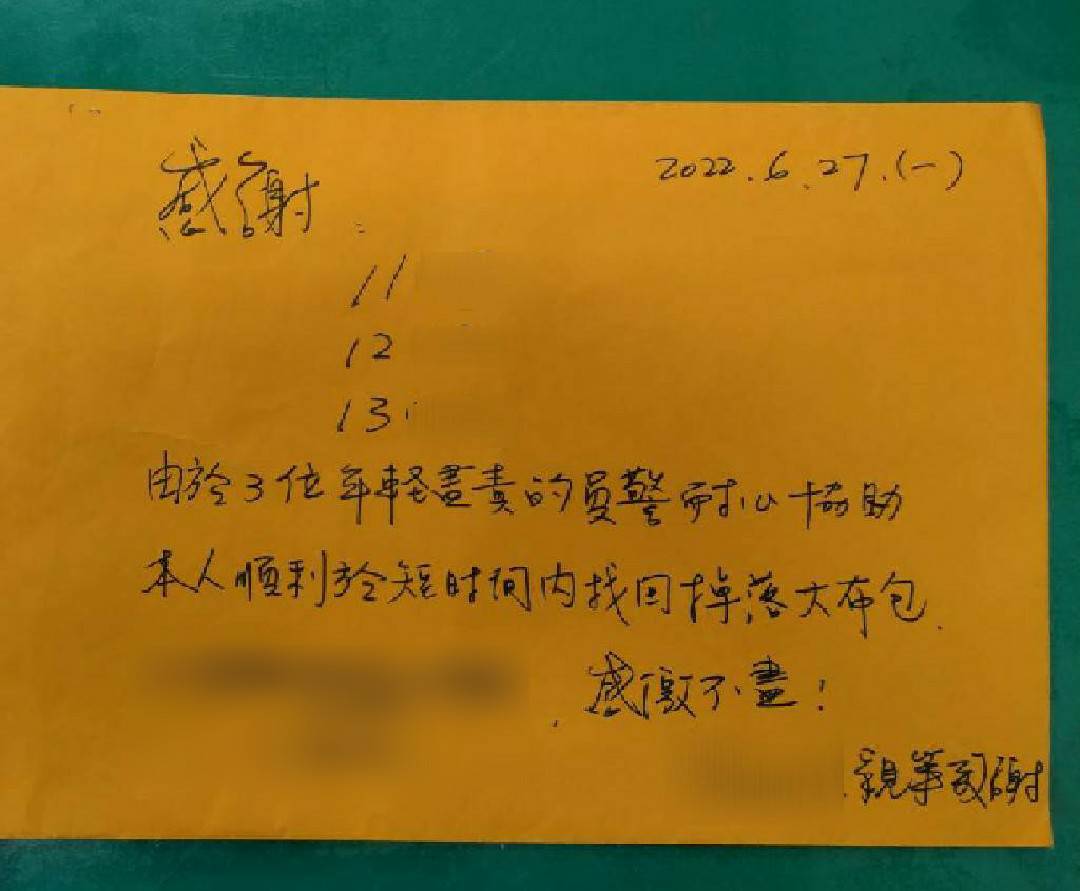 感謝：
2022.6.27.(一)
11
12
13
由於3位年輕盡責的員警耐心協助
本人順利於短時间內找回掉落大布包.
感激不盡！
親筆致謝